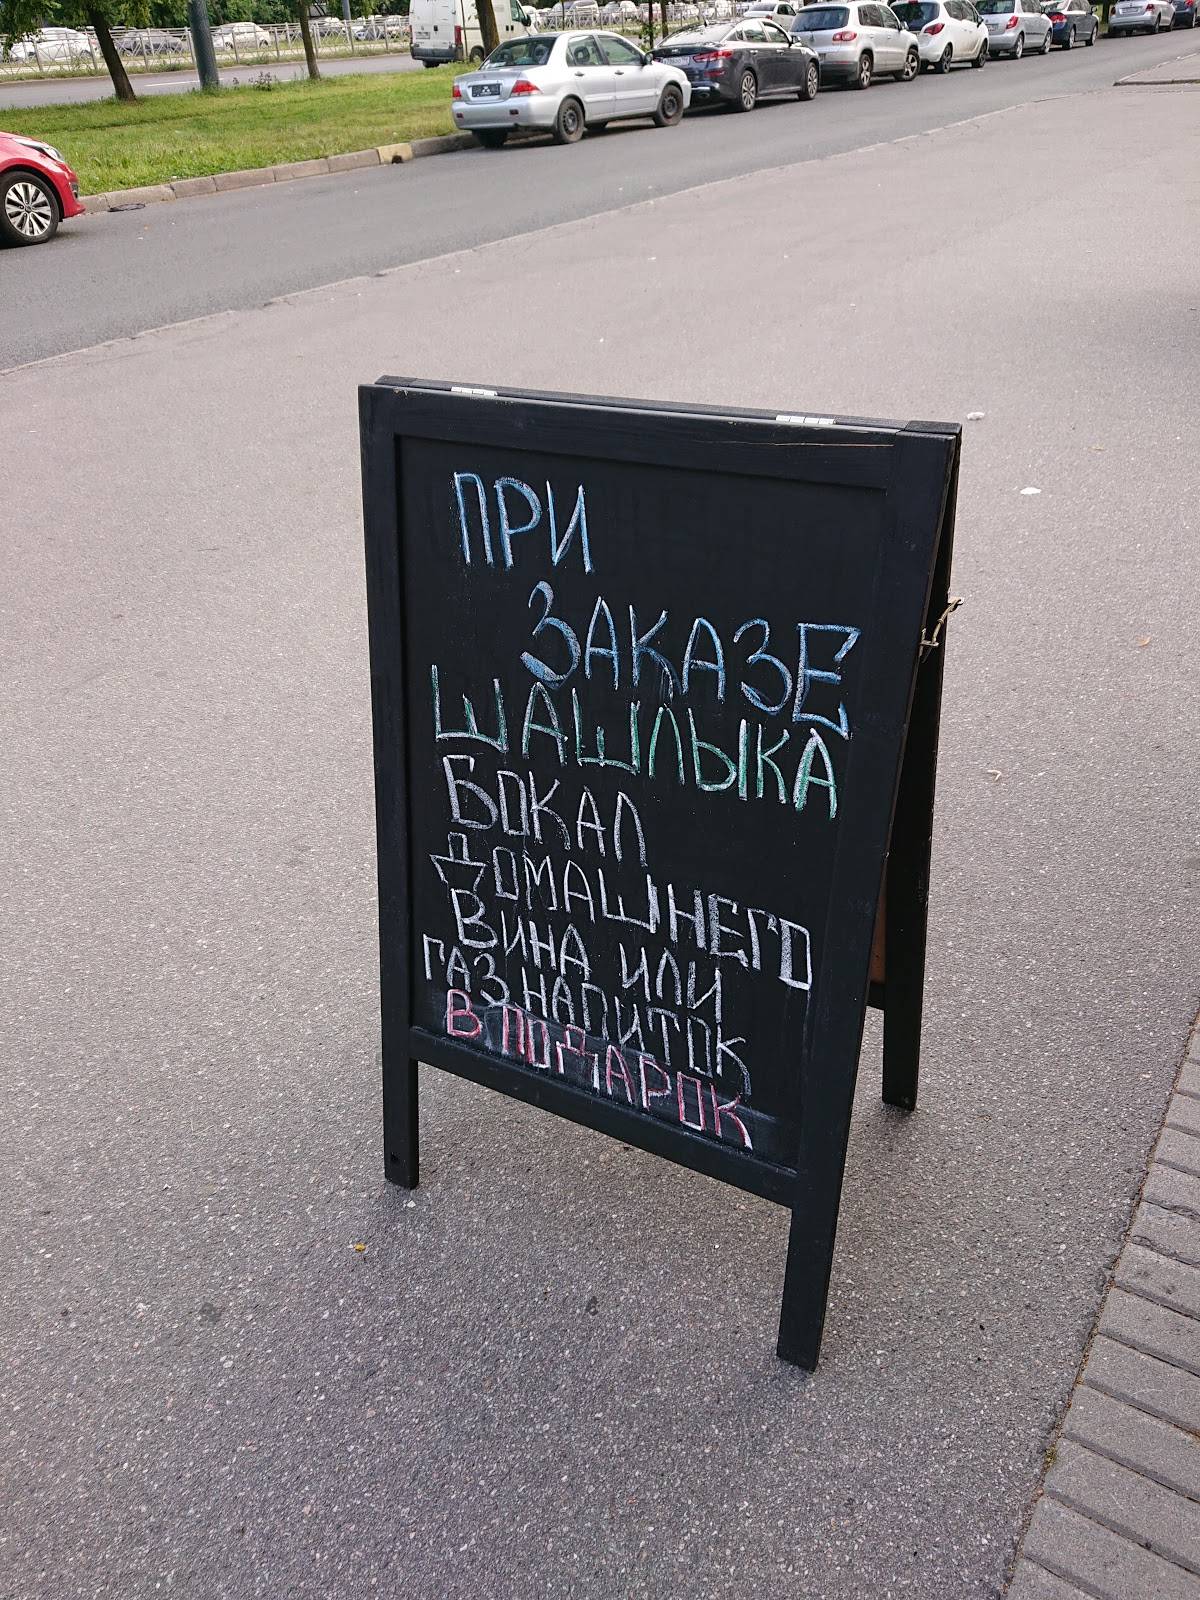 ПРИ
ЗАКАЗЕ
ШАШЛЫКА
БОКАЛ
ДОМАШНЕГО
ВИНА ИЛИ
ГАЗ НАПИТОК
В ПОДАРОК